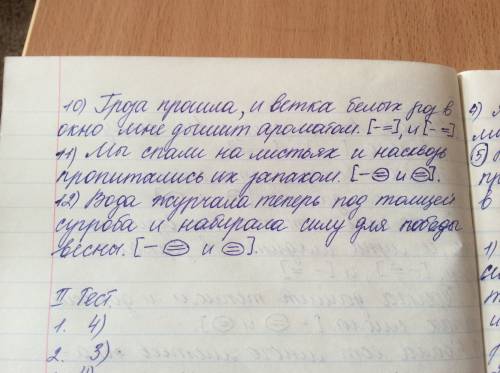 10) Гроза прошла, и ветка белых роз в
окно мне дышит ароматом. [-=], и [-=].
11) Мы спали на листьях и насквозь
пропитались их запахом. [- = и =].
12) Вода журчала теперь под толщей
сугроба и набирала силу для победы
весны. [- = и =].
II Тест.
1. 4)
2. 3)